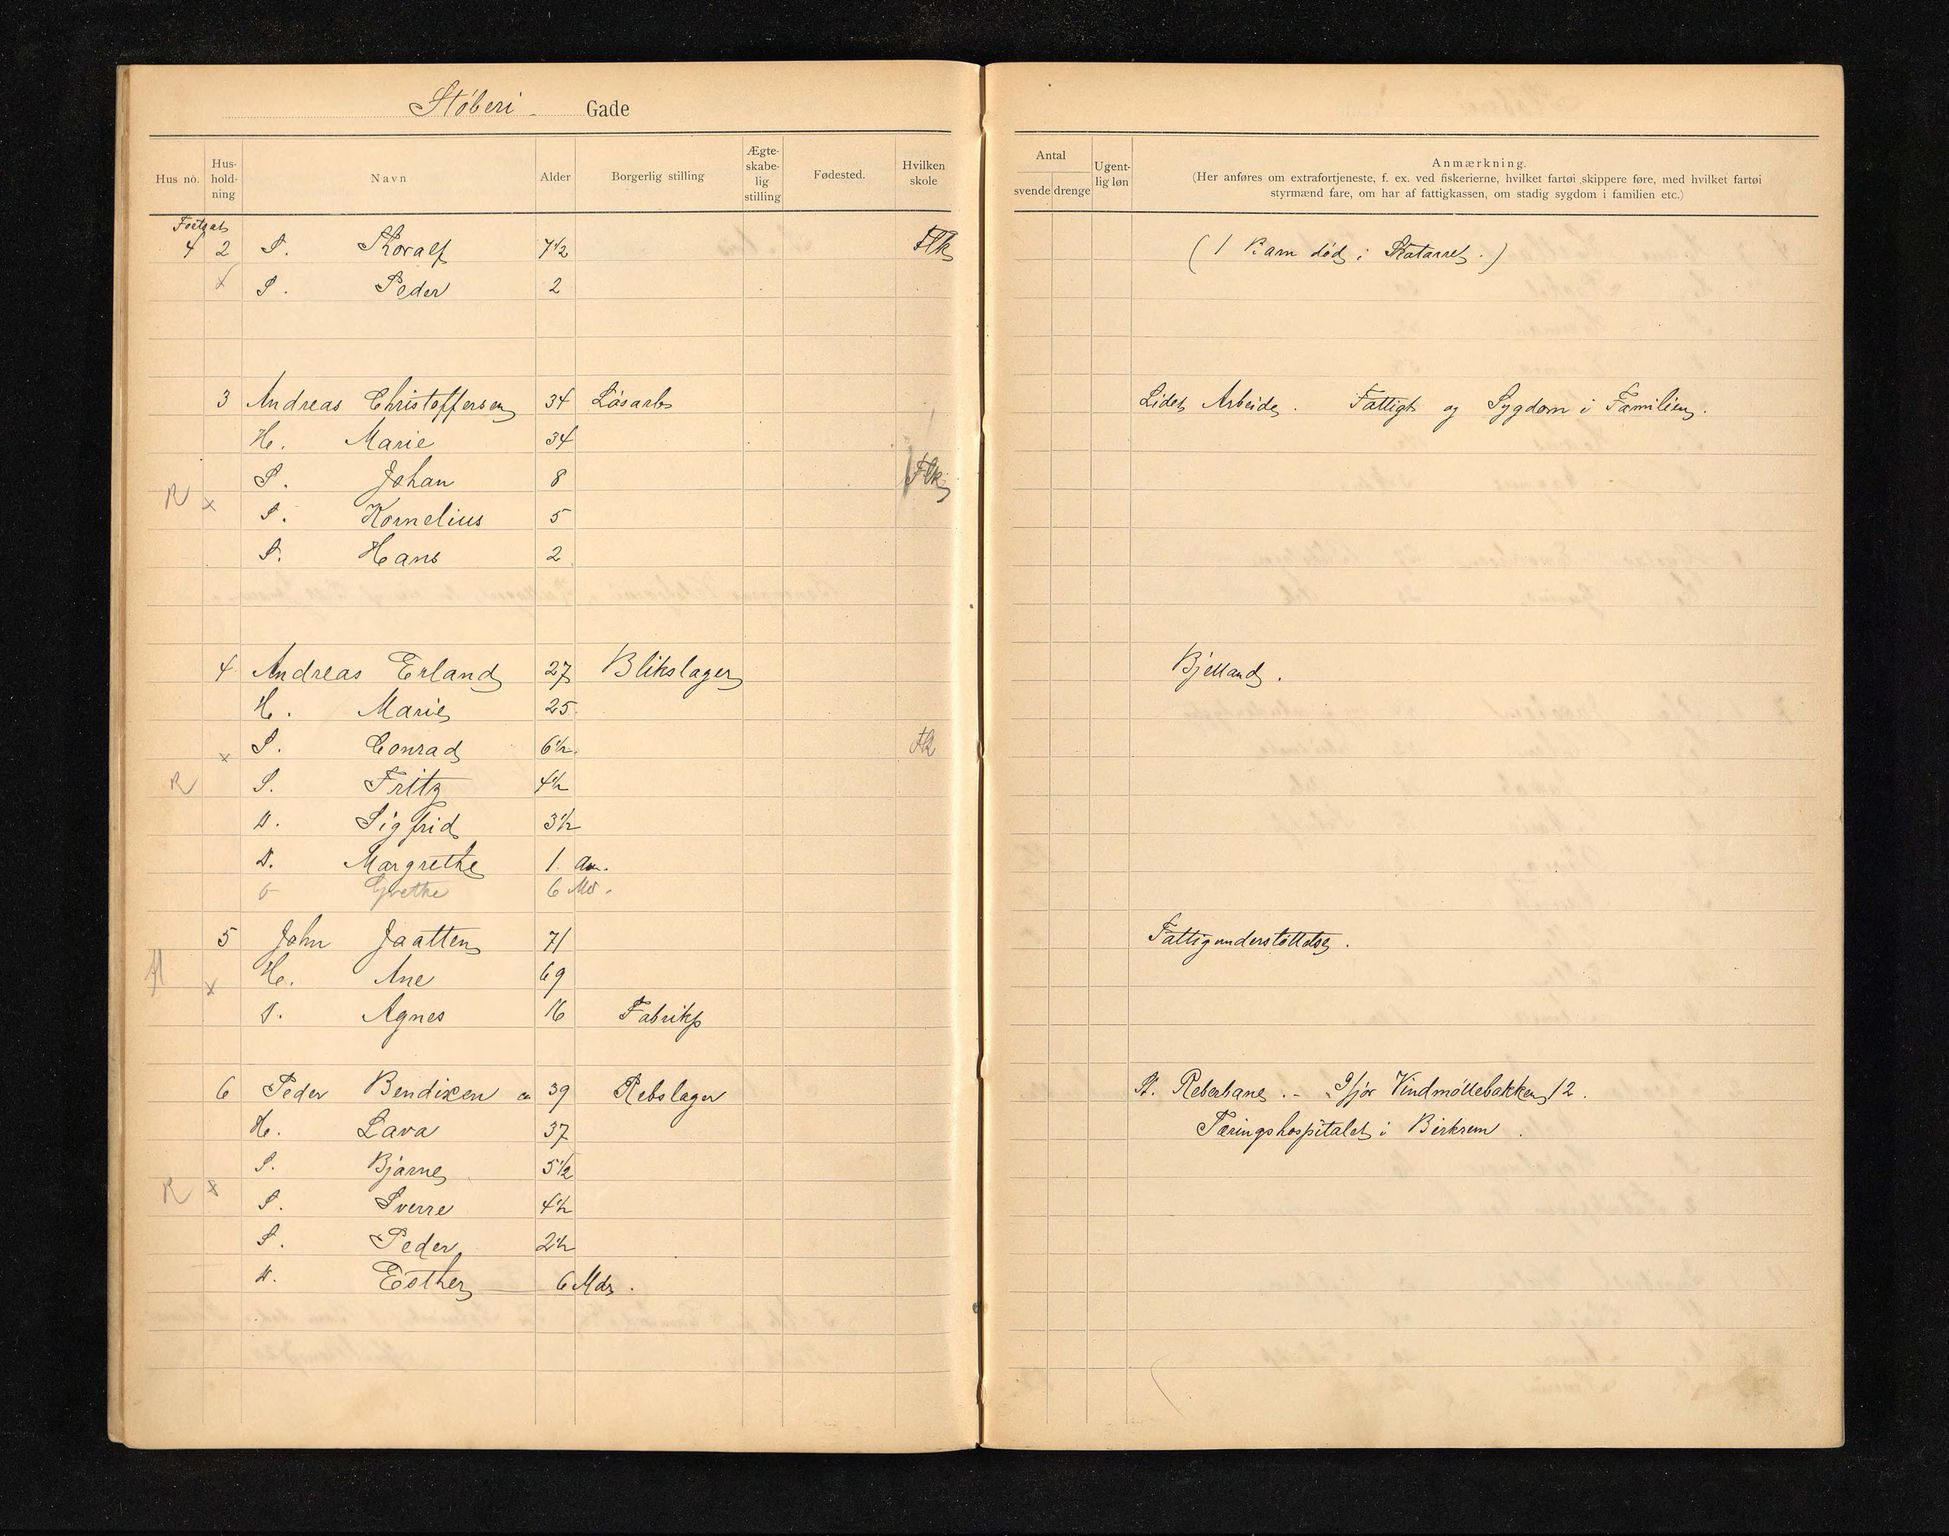 Støberi Gade
Hus nò. Hus-holdning Navn Alder Borgerlig stilling Ægte-skabe-lig stilling Fødested. Hvilken skole
Antal svende drenge Ugent-lig løn Anmærkning.
(Her anføres om extrafortjeneste, f. ex. ved fiskerierne, hvilket fartøi skippere føre, med hvilket fartøi
styrmænd fare, om har af fattigkassen, om stadig sygdom i familien etc.)
Fortsat
4 2 S. Thoralf 7 1/2 Flk (1 Barn død i Katarret.)
x S. Peder 2
3 Andreas Christoffersen 34 Løsarb Lidet Arbeide. Fattigt og Sygdom i Familien.
H. Marie 34
S. Johan 8 Flk
R x S. Kornelius 5
S. Hans 2
4 Andreas Erland 27 Blikslager Bjelland.
H. Marie 25
x S. Conrad 6 1/2 Flk
R S. Fritz 4 1/2
D. Sigfrid 3 1/2
D. Margrethe 1 Aar.
Grethe 6 Md.
5 John Jaatten 71 Fattigunderstøttelse.
H. Ane 69
x
D. Agnes 16 Fabrikp
6 Peder Bendixen 39 Rebslager St. Reberbane. - Ifjor Vindmøllebakken 12.
H. Lava 37 Tæringshospitalet i Birkrem.
S. Bjarne 5 1/2
R x S. Sverre 4 1/2
S. Peder 2 1/2
D. Esther 6 Mdr.